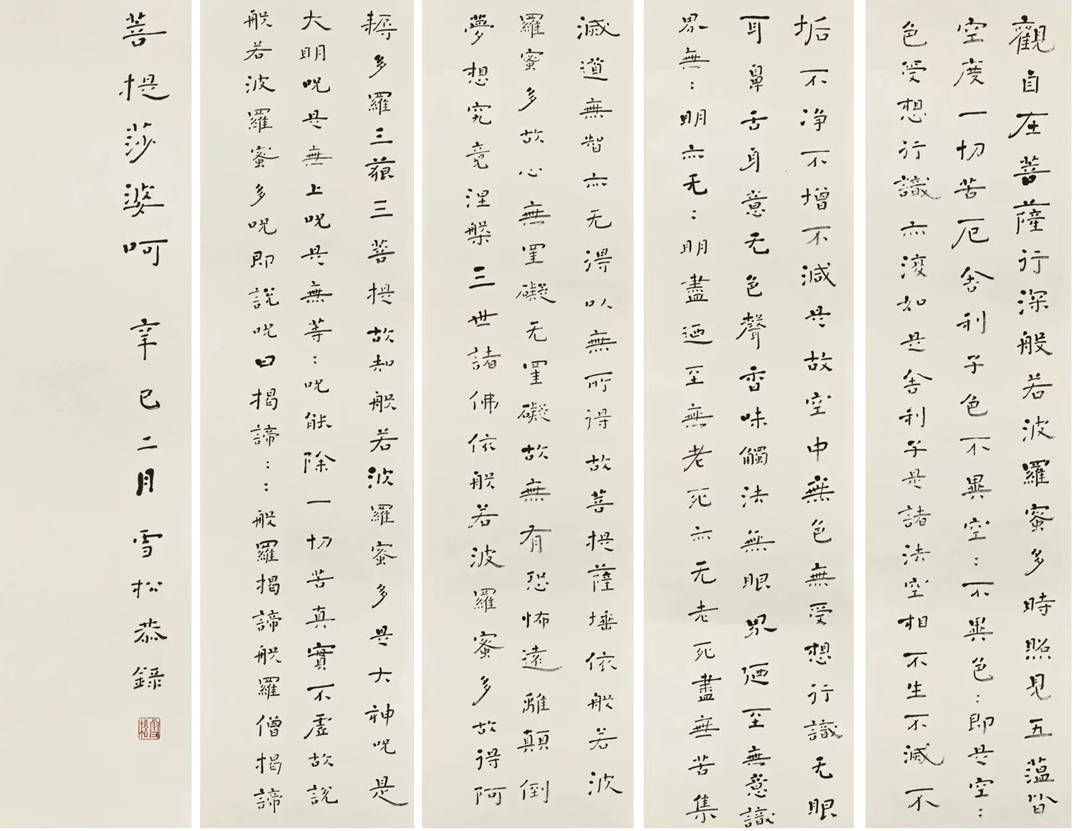 觀自在菩薩行深般若波羅蜜多時照見五蘊皆
空度一切苦厄舍利子色不異空：不異色：即是空：
色受想行識亦復如是舍利子是諸法空相不生不滅不
垢不净不增不減是故空中無色無受想行識无眼
耳鼻舌身意无色聲香味觸法無眼界廼至無意識
界無：明亦无：明盡廼至無老死亦无老死盡無苦集
滅道無智亦无得以無所得故菩提薩埵依般若波
羅蜜多故心無罣礙无罣礙故無有恐怖遠離顛倒
夢想究竟涅槃三世諸佛依般若波羅蜜多故得阿
耨多羅三藐三菩提故知般若波羅蜜多是大神咒是
大明咒是無上咒是無等：咒能除一切苦真實不虛故說
般若波羅蜜多咒即說咒曰揭諦：：般羅揭諦般羅僧揭諦
菩提莎婆呵 辛巳二月雪松恭錄
雪松